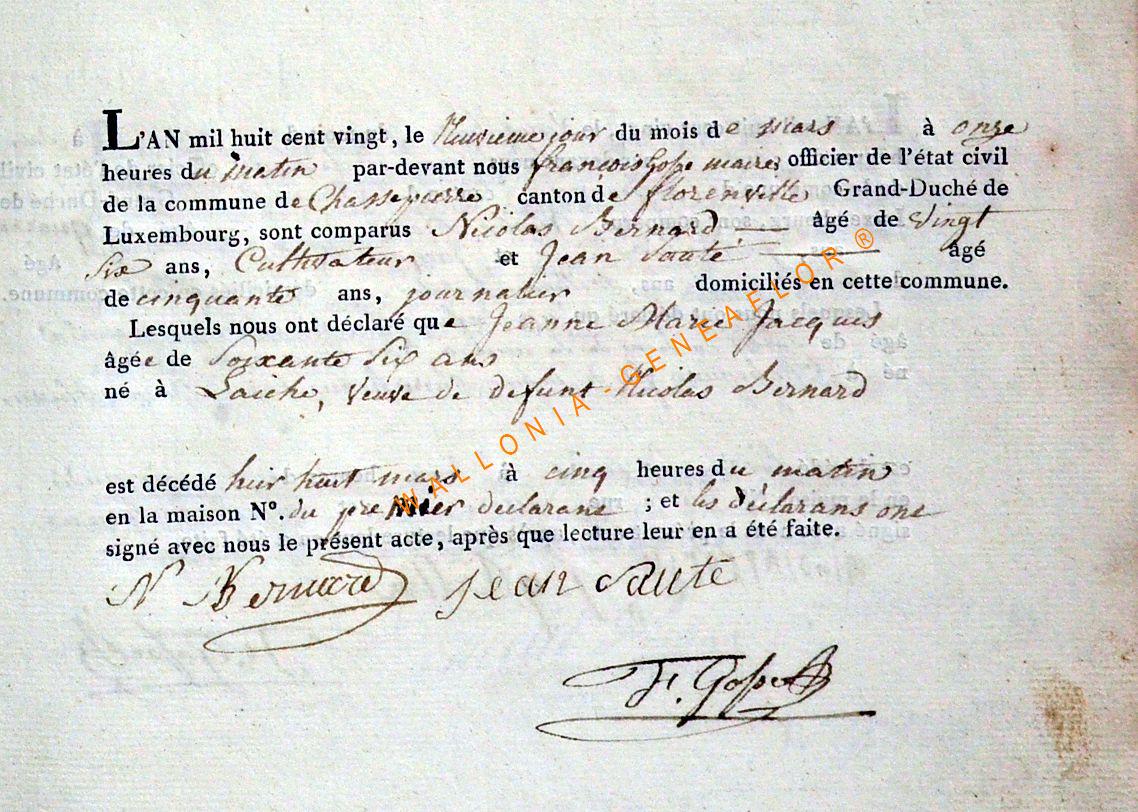 L'AN mil huit cent vingt, le Neuvieme jour du mois de mars à onze
heures du Matin par-devant nous françois Gosse maire, officier de l'état civil
de la commune de Chassepierre canton de florenville Grand-Duché de
Luxembourg, sont comparus Nicolas Bernard âgé de Vingt
Six ans, Cultivateur et Jean Sauté âgé
de cinquante ans, journalier domiciliés en cette commune.
Lesquels nous ont déclaré que Jeanne Marie Jacques
âgée de Soixante Six ans
né à Laiche, veuve de defunt Nicolas Bernard
est décédé hier huit mars à cinq heures du matin
en la maison N°. du premier declarant ; et les déclarans ont
signé avec nous le présent acte, après que lecture leur en a été faite.
N Bernard Jean Saute
F. Gosse
WALLONIA - GENEAFLOR ®